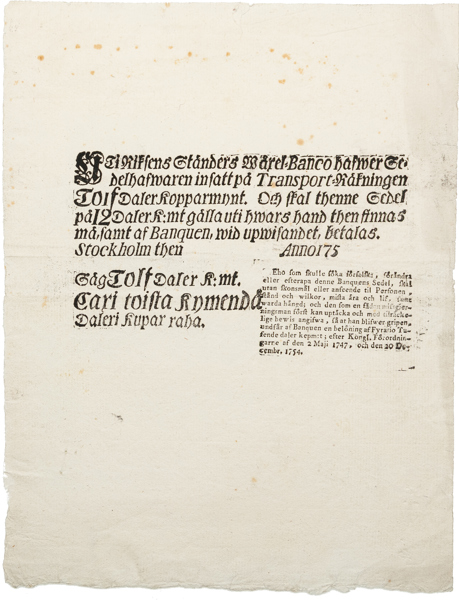 UTi Riksens Ständers Wäxel-Banco hafwer Se-
delhafwaren insatt på Transport-Räkningen
Tolf Daler Kopparmynt. Och skal thenne Sedel
på 12 Daler K:mt gälla uti hwars hand then finnas
må, samt af Banquen, wid upwisandet, betalas.
Stockholm then Anno 175
Säg Tolf Daler K:mt.
Caxi toista kymendä
Daleri Kupar raha.
Eho som skulle söka förfalska, förändra
eller efterapa denne Banquens Sedel, skal
utan skonsmål eller anseende til Person,
stånd och wilkor, mista ära och lif, samt
warda hängd; och den som en sådan
först kan uptäcka och med tilräcke-
lige bewis angifwa, så at han blifwer gripen,
undfår af Banquen en belöning af Fyratio Tu-
sende daler kopmt; efter Kongl. Förordnin-
garne af den 2 Maji 1747, och den 20 De-
cembr. 1754.